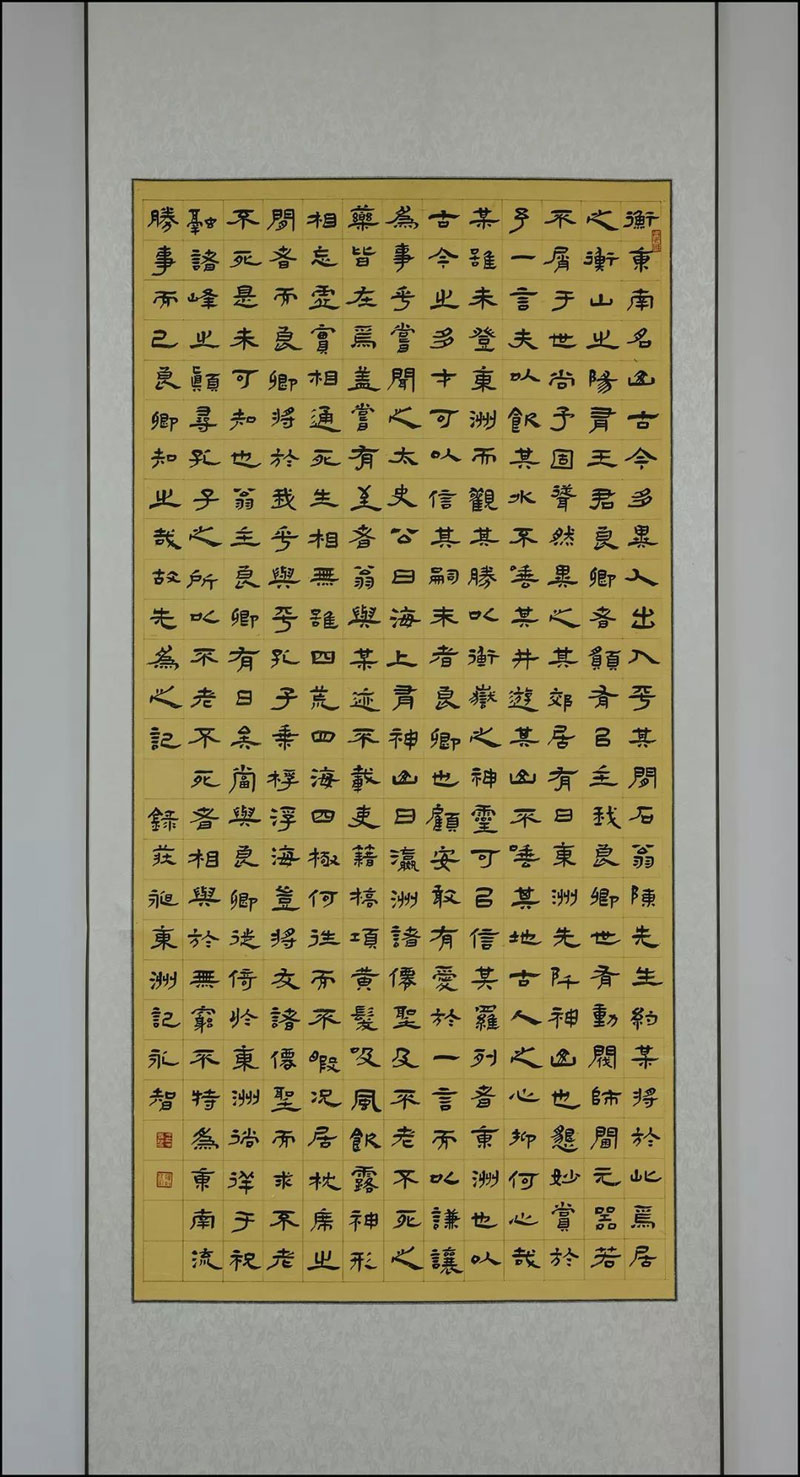 衡東南名山古今多異人出入乎其間石翁陳先生約某將於此焉居
之衡山之陽有王君良卿者願有以主我良卿世有勳閥師閫元器若
不屑于世尚予固聳然異之其郊居有曰東洲先阡神山也懇妙賞於
予一言夫以飲其水不唾其井遊其山不唾其地古人之心抑何心哉
某雖未登東洲而觀其勝以衡嶽之神靈可以信其羅列者東洲也以
古今之多才可以信其嗣末者良卿也顧安敢有愛於一言而以謙讓
為事乎嘗聞之太史公曰海上有神山曰瀛洲諸僊聖及不老不死之
藥皆在焉蓋嘗有至者翁與某迹不載吏籍槁項黄髮吸風飲露神形
相忘虛實相通死生相無雖四荒四海四極何往而不暇况居枕席之
間者而良卿將於我乎與乎孔子乘桴浮海豈將友諸僊聖而求不老
不死是未可知也翁主良卿有日矣當與良卿徙倚於東洲徜徉于祝
融諸峰之顛尋孔子之所以不老不死者相與於無窮不特為東南流
勝事而已良卿知之哉故先為之記 錄莊昶東洲記永智